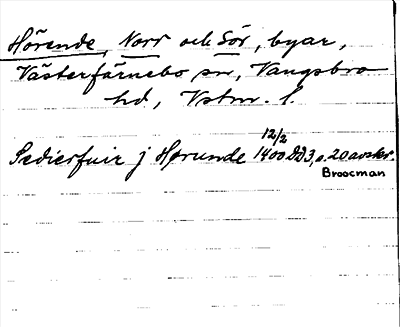 Hörende, Norr och Sör, byar,
Västerfärnebo sn, Vangsbro
hd, Vstm. l.
12/2
Sedierfuir j Hørunde 1400 DD3, s. 20 avskr.
Broocman